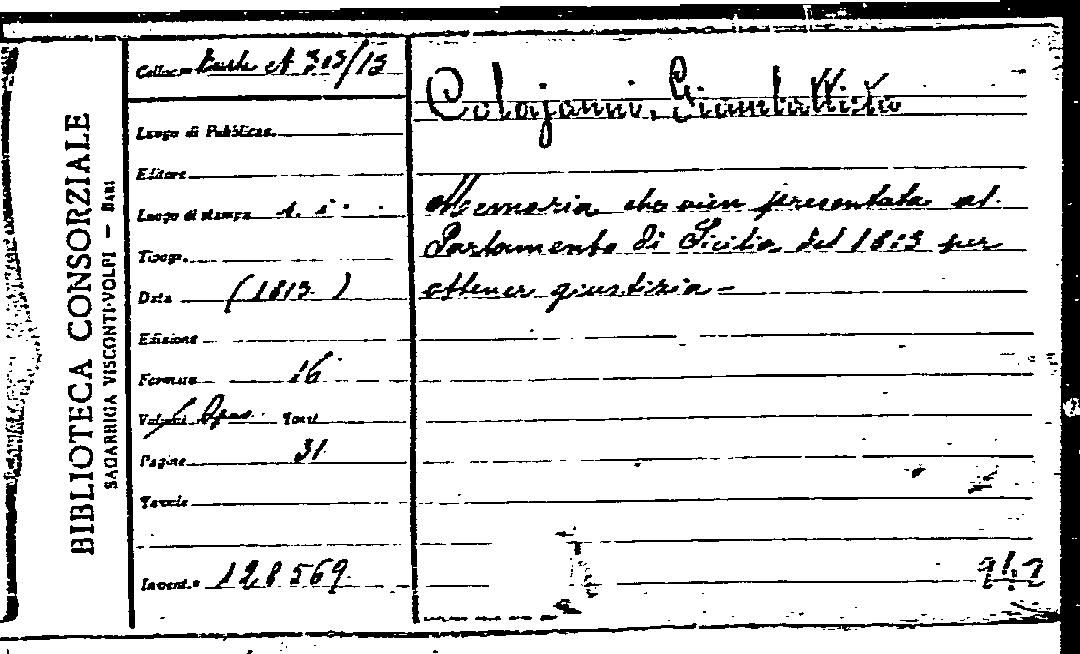 BIBLIOTECA CONSORZIALE
SAGARRIGA VISCONTI-VOLPI - BARI
Collocaz. A 313/13
Luogo di Pubblicaz.
Editore
Luogo di stampa s. i.
Tipogr.
Data (1813)
Edizione
Formato 16
Volumi Opus. Tomi
Pagine 31
Tavole
Invent.° 128569
Colajanni, Giambattista
Memoria che vien presentata al
Parlamento di Sicilia del 1813 per
ottener giustizia -